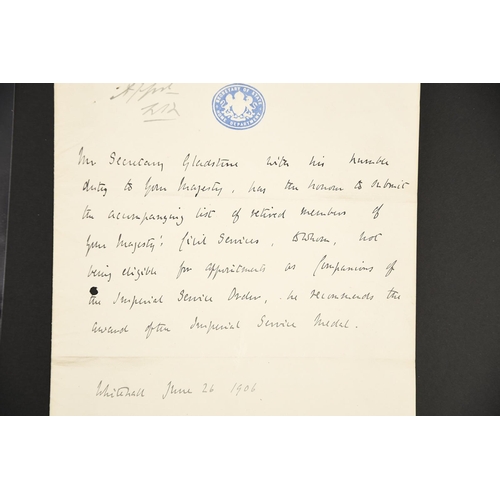 Appd.
SECRETARY OF STATE
HOME DEPARTMENT
Mr Secretary Gladstone with his humber
duty to Your Majesty, has the honour to submit
the accompanying list of retired members of
Your Majesty's Civil Services, to whom, not
being eligible for appointments as Companions of
the Imperial Service Order, he recommends the
award of the Imperial Service Medal.
Whitehall June 26 1906.